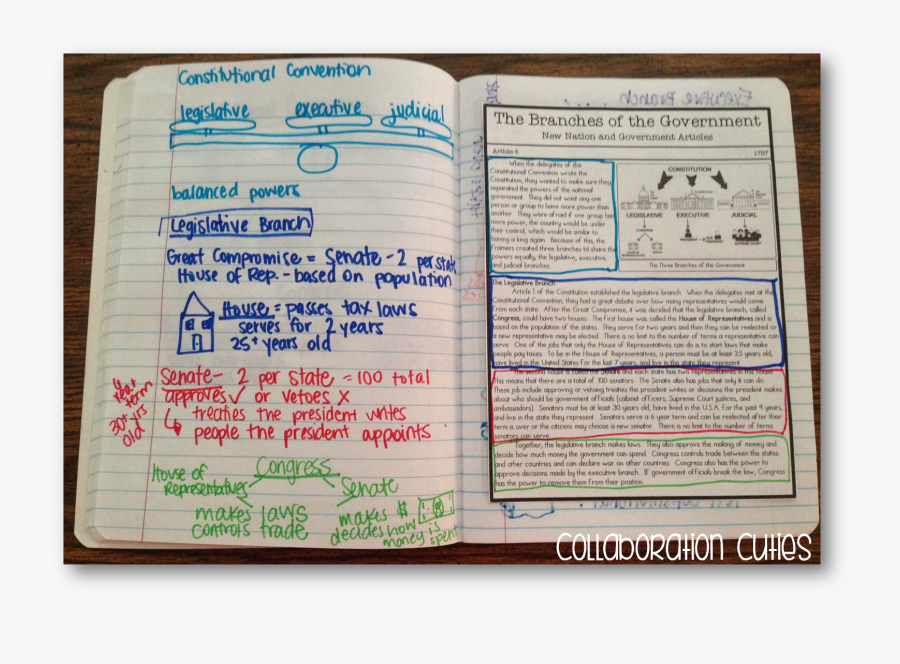 Constitutional Convention
legislative executive judicial
balanced powers
Legislative Branch
Great Compromise = Senate - 2 per state
House of Rep. - based on population
House = passes tax laws
serves for 2 years
25+ years old
Senate - 2 per state = 100 total
approves ✓ or vetoes X
treaties the president writes
people the president appoints
4 year
term
30+ yrs
old
Congress
House of
Representatives
Senate
makes laws
controls trade
makes $
decides how
money is
spent
Executive Branch
The Branches of the Government
New Nation and Government Articles
Article 8 1787
When the delegates of the
Constitutional Convention wrote the
Constitution, they wanted to make sure they
separated the powers of the national
government. They did not want any one
person or group to have more power than
another. They were afraid if one group has
more power, the country would be under
their control, which would be similar to
having a king again. Because of this, the
framers created three branches to share the
powers equally, the legislative, executive,
and judicial branches.
CONSTITUTION
LEGISLATIVE EXECUTIVE JUDICIAL
The Three Branches of the Government
The Legislative Branch
Article 1 of the Constitution established the legislative branch. When the delegates met at the
Constitutional Convention, they had a great debate over how many representatives would come
from each state. After the Great Compromise, it was decided that the legislative branch, called
Congress, could have two houses. The first house was called the House of Representatives and is
based on the population of the states. They serve for two years and then they can be reelected or
a new representative may be elected. There is no limit to the number of terms a representative can
serve. One of the jobs that only the House of Representatives can do is to start laws that make
people pay taxes. To be in the House of Representatives, a person must be at least 25 years old,
have lived in the United States for the last 7 years, and live in the state they represent.
The second house is called the Senate and each state has two representatives in this house.
This means that there are a total of 100 senators. The Senate also has jobs that only it can do.
These job include approving or vetoing treaties the president writes or decisions the president makes
about who should be government officials (cabinet officers, Supreme Court justices, and
ambassadors). Senators must be at least 30 years old, have lived in the U.S.A. for the past 9 years,
and live in the state they represent. Senators serve a 6 year term and can be reelected after their
term is over or the citizens may choose a new senator. There is no limit to the number of terms
senators can serve.
Together, the legislative branch makes laws. They also approve the making of money and
decide how much money the government can spend. Congress controls trade between the states
and other countries and can declare war on other countries. Congress also has the power to
approve decisions made by the executive branch. If government officials break the law, Congress
has the power to remove them from their position.
COLLABORATION CUTIES